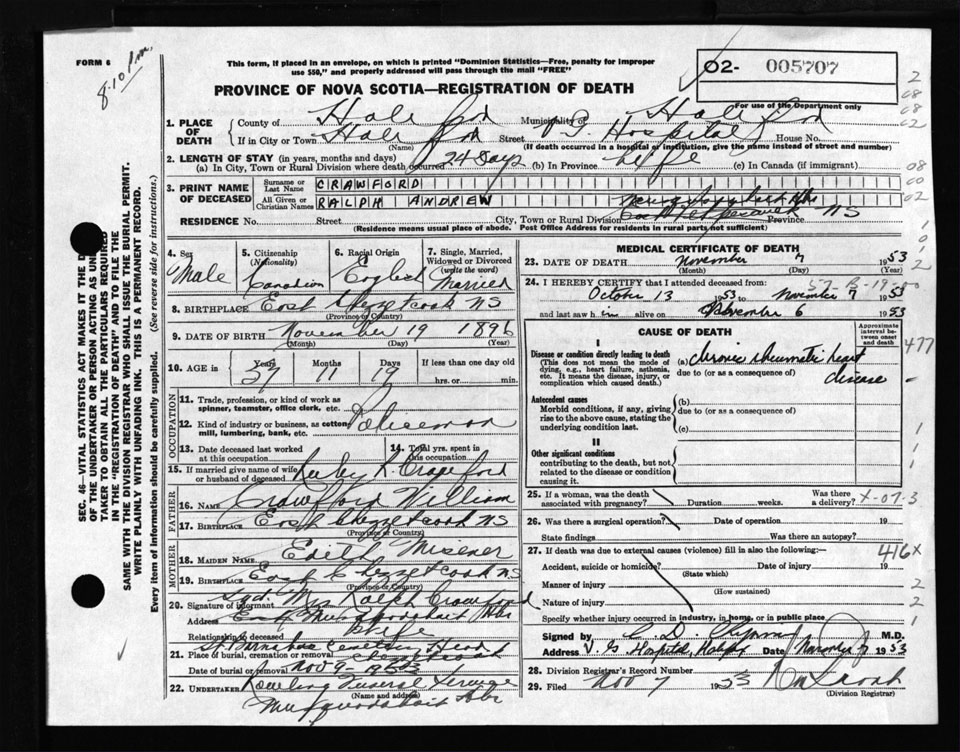 FORM 6
8.10 P.m.
This form, if placed in an envelope, on which is printed "Dominion Statistics—Free, penalty for improper
use $50," and properly addressed will pass through the mail "FREE"
02- 005707
For use of the Department only
PROVINCE OF NOVA SCOTIA—REGISTRATION OF DEATH
1. PLACE OF DEATH
County of Halifax Municipality of Halifax
If in City or Town Halifax Street V.G. Hospital House No.
(Name) (If death occurred in a hospital or institution, give the name instead of street and number)
2. LENGTH OF STAY (in years, months and days)
(a) In City, Town or Rural Division where death occurred 24 Days (b) In Province Life (c) In Canada (if immigrant)
3. PRINT NAME OF DECEASED
Surname or Last Name CRAWFORD
All Given or Christian Names RALPH ANDREW
RESIDENCE No. Street City, Town or Rural Division Province NS
(Residence means usual place of abode. Post Office Address for residents in rural parts not sufficient)
4. Sex Male
5. Citizenship (Nationality) Canadian
6. Racial Origin English
7. Single, Married, Widowed or Divorced (write the word) Married
8. BIRTHPLACE East Chezzetcook NS
(Province or Country)
9. DATE OF BIRTH November 19 1896
(Month) (Day) (Year)
10. AGE in Years 57 Months 11 Days 19 If less than one day old
hrs. or min.
OCCUPATION
11. Trade, profession, or kind of work as
spinner, teamster, office clerk, etc.
12. Kind of industry or business, as cotton
mill, lumbering, bank, etc. Policeman
13. Date deceased last worked at this occupation
14. Total yrs. spent in this occupation
15. If married give name of wife or husband of deceased Crawford
FATHER
16. NAME Crawford William
17. BIRTHPLACE East Chezzetcook NS
(Province or Country)
MOTHER
18. MAIDEN NAME Edith Misener
19. BIRTHPLACE East Chezzetcook NS
(Province or Country)
20. Signature of informant Sgd. Mrs Ralph Crawford
Address East Musquodoboit Hbr
Relationship to deceased Wife
St Barnabas Cemetery Head
21. Place of burial, cremation or removal Chezzetcook
Date of burial or removal Nov 9 - 1953
22. UNDERTAKER Funeral Service
(Name and address)
Musquodoboit Hbr
MEDICAL CERTIFICATE OF DEATH
23. DATE OF DEATH November 7 1953
(Month) (Day) (Year)
24. I HEREBY CERTIFY that I attended deceased from:
October 13 1953 to November 7 1953
and last saw him alive on November 6 1953
CAUSE OF DEATH
Approximate interval between onset and death
I
Disease or condition directly leading to death
(This does not mean the mode of dying, e.g., heart failure, asthenia, etc. It means the disease, injury, or complication which caused death.)
(a) chronic rheumatic heart
due to (or as a consequence of) disease
Antecedent causes
Morbid conditions, if any, giving rise to the above cause, stating the underlying condition last.
(b)
due to (or as a consequence of)
(c)
II
Other significant conditions
contributing to the death, but not related to the disease or condition causing it.
25. If a woman, was the death associated with pregnancy? Duration weeks. Was there a delivery?
26. Was there a surgical operation? Date of operation 19
State findings Was there an autopsy?
27. If death was due to external causes (violence) fill in also the following:—
Accident, suicide or homicide? Date of injury 19
(State which)
Manner of injury
(How sustained)
Nature of injury
Specify whether injury occurred in industry, in home, or in public place
Signed by M.D.
Address V.G. Hospital, Halifax Date November 7 1953
28. Division Registrar's Record Number
29. Filed Nov 7 1953
(Division Registrar)
477
416X
SEC. 46—VITAL STATISTICS ACT MAKES IT THE D
OF THE UNDERTAKER OR PERSON ACTING AS UND
TAKER TO OBTAIN ALL THE PARTICULARS REQUIRED
IN THE "REGISTRATION OF DEATH" AND FILE THE
SAME WITH THE DIVISION REGISTRAR WHO SHALL ISSUE THE BURIAL PERMIT.
WRITE PLAINLY WITH UNFADING INK. THIS IS A PERMANENT RECORD.
Every item of information should be carefully supplied. (See reverse side for instructions.)